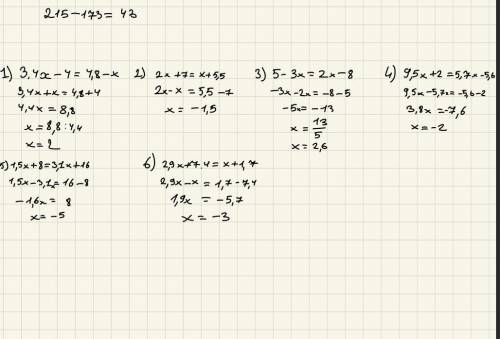 215-173= 43
1) 3,4x-4=4,8-x
3,4x+x=4,8+4
4,4x=8,8
x=8,8:4,4
x=2
2) 2x+7=x+5,5
2x-x=5,5-7
x=-1,5
3) 5-3x=2x-8
-3x-2x=-8-5
-5x=-13
x=13/5
x=2,6
4) 9,5x+2=5,7x-5,6
9,5x-5,7x=-5,6-2
3,8x=-7,6
x=-2
5) 1,5x+8=3,1x+16
1,5x-3,1x=16-8
-1,6x= 8
x=-5
6) 2,9x+7,4=x+1,7
2,9x-x=1,7-7,4
1,9x =-5,7
x=-3